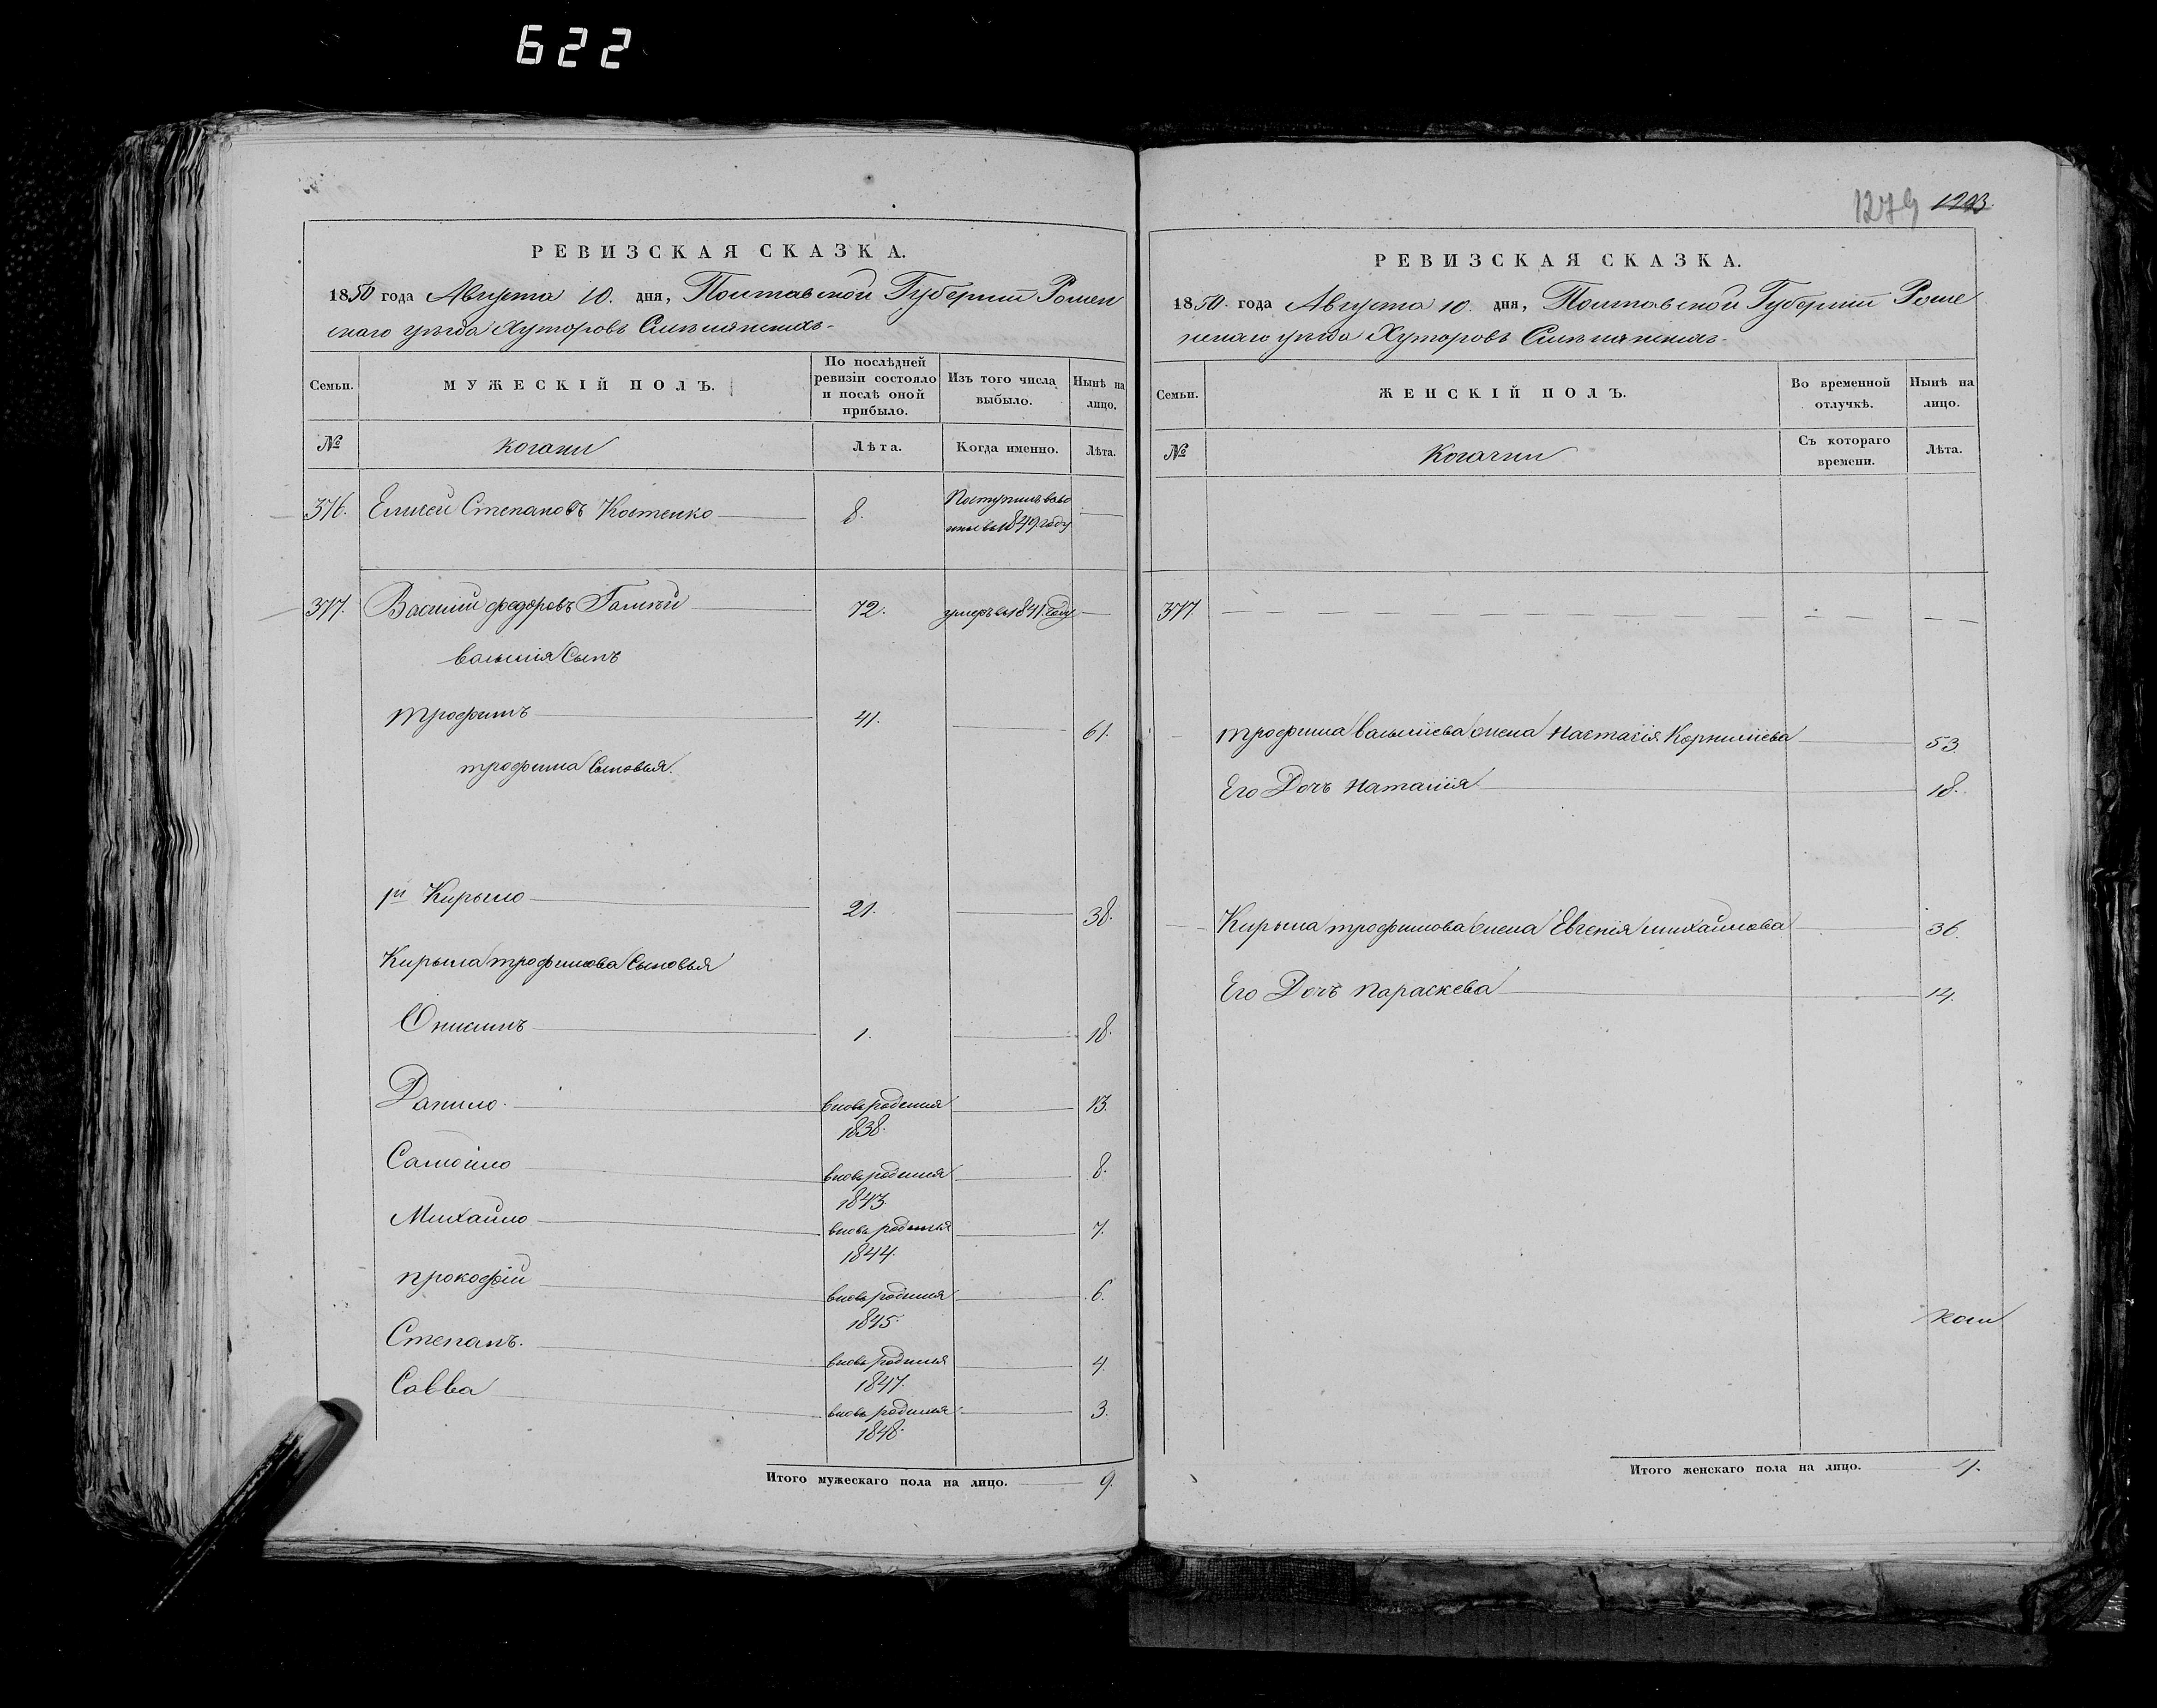 622
РЕВИЗСКАЯ СКАЗКА.
1850 года Августа 10. дня, Полтавской Губернии Ромен
скаго уезда Хуторовъ
Семьи.
МУЖЕСКІЙ ПОЛЪ.
По послѣдней ревизіи состояло и послѣ оной прибыло.
Изъ того числа выбыло.
Нынѣ на лицо.
№
Козаки
Лѣта.
Когда именно.
Лѣта.
376. Елисей Степановъ Костенко 8. Поступилъ 1849 году
377. Василий федоровъ 72. умеръ въ 1841 году
василія Сынъ
трофимъ 41. 61.
трофима Сыновья.
1й Кирыло 21. 38.
Кирыла трофимова Сыновья
Онисимъ 1. 18.
Данило. вновь рожденный 1838. 13.
Самойло вновь рожденный 1843. 8.
Михайло вновь рожденный 1844. 7.
прокофій вновь рожденный 1845. 6.
Степанъ. вновь рожденный 1847. 4.
Савва вновь рожденный 1848. 3.
Итого мужескаго пола на лицо. 9.
1279 1293.
РЕВИЗСКАЯ СКАЗКА.
1850. года Августа 10. дня, Полтавской Губерніи Роме
нскаго уезда Хуторовъ
Семьи.
ЖЕНСКІЙ ПОЛЪ.
Во временной отлучкѣ.
Нынѣ на лицо.
№
Козачки
Съ котораго времени.
Лѣта.
377.
трофима василиева жена Настасія Корнилиева 53.
Его Дочъ Наталия 18.
Кирыла трофимова жена Евгенія михайлова 36.
Его Дочъ параскева 14.
Итого женскаго пола на лицо. 4.